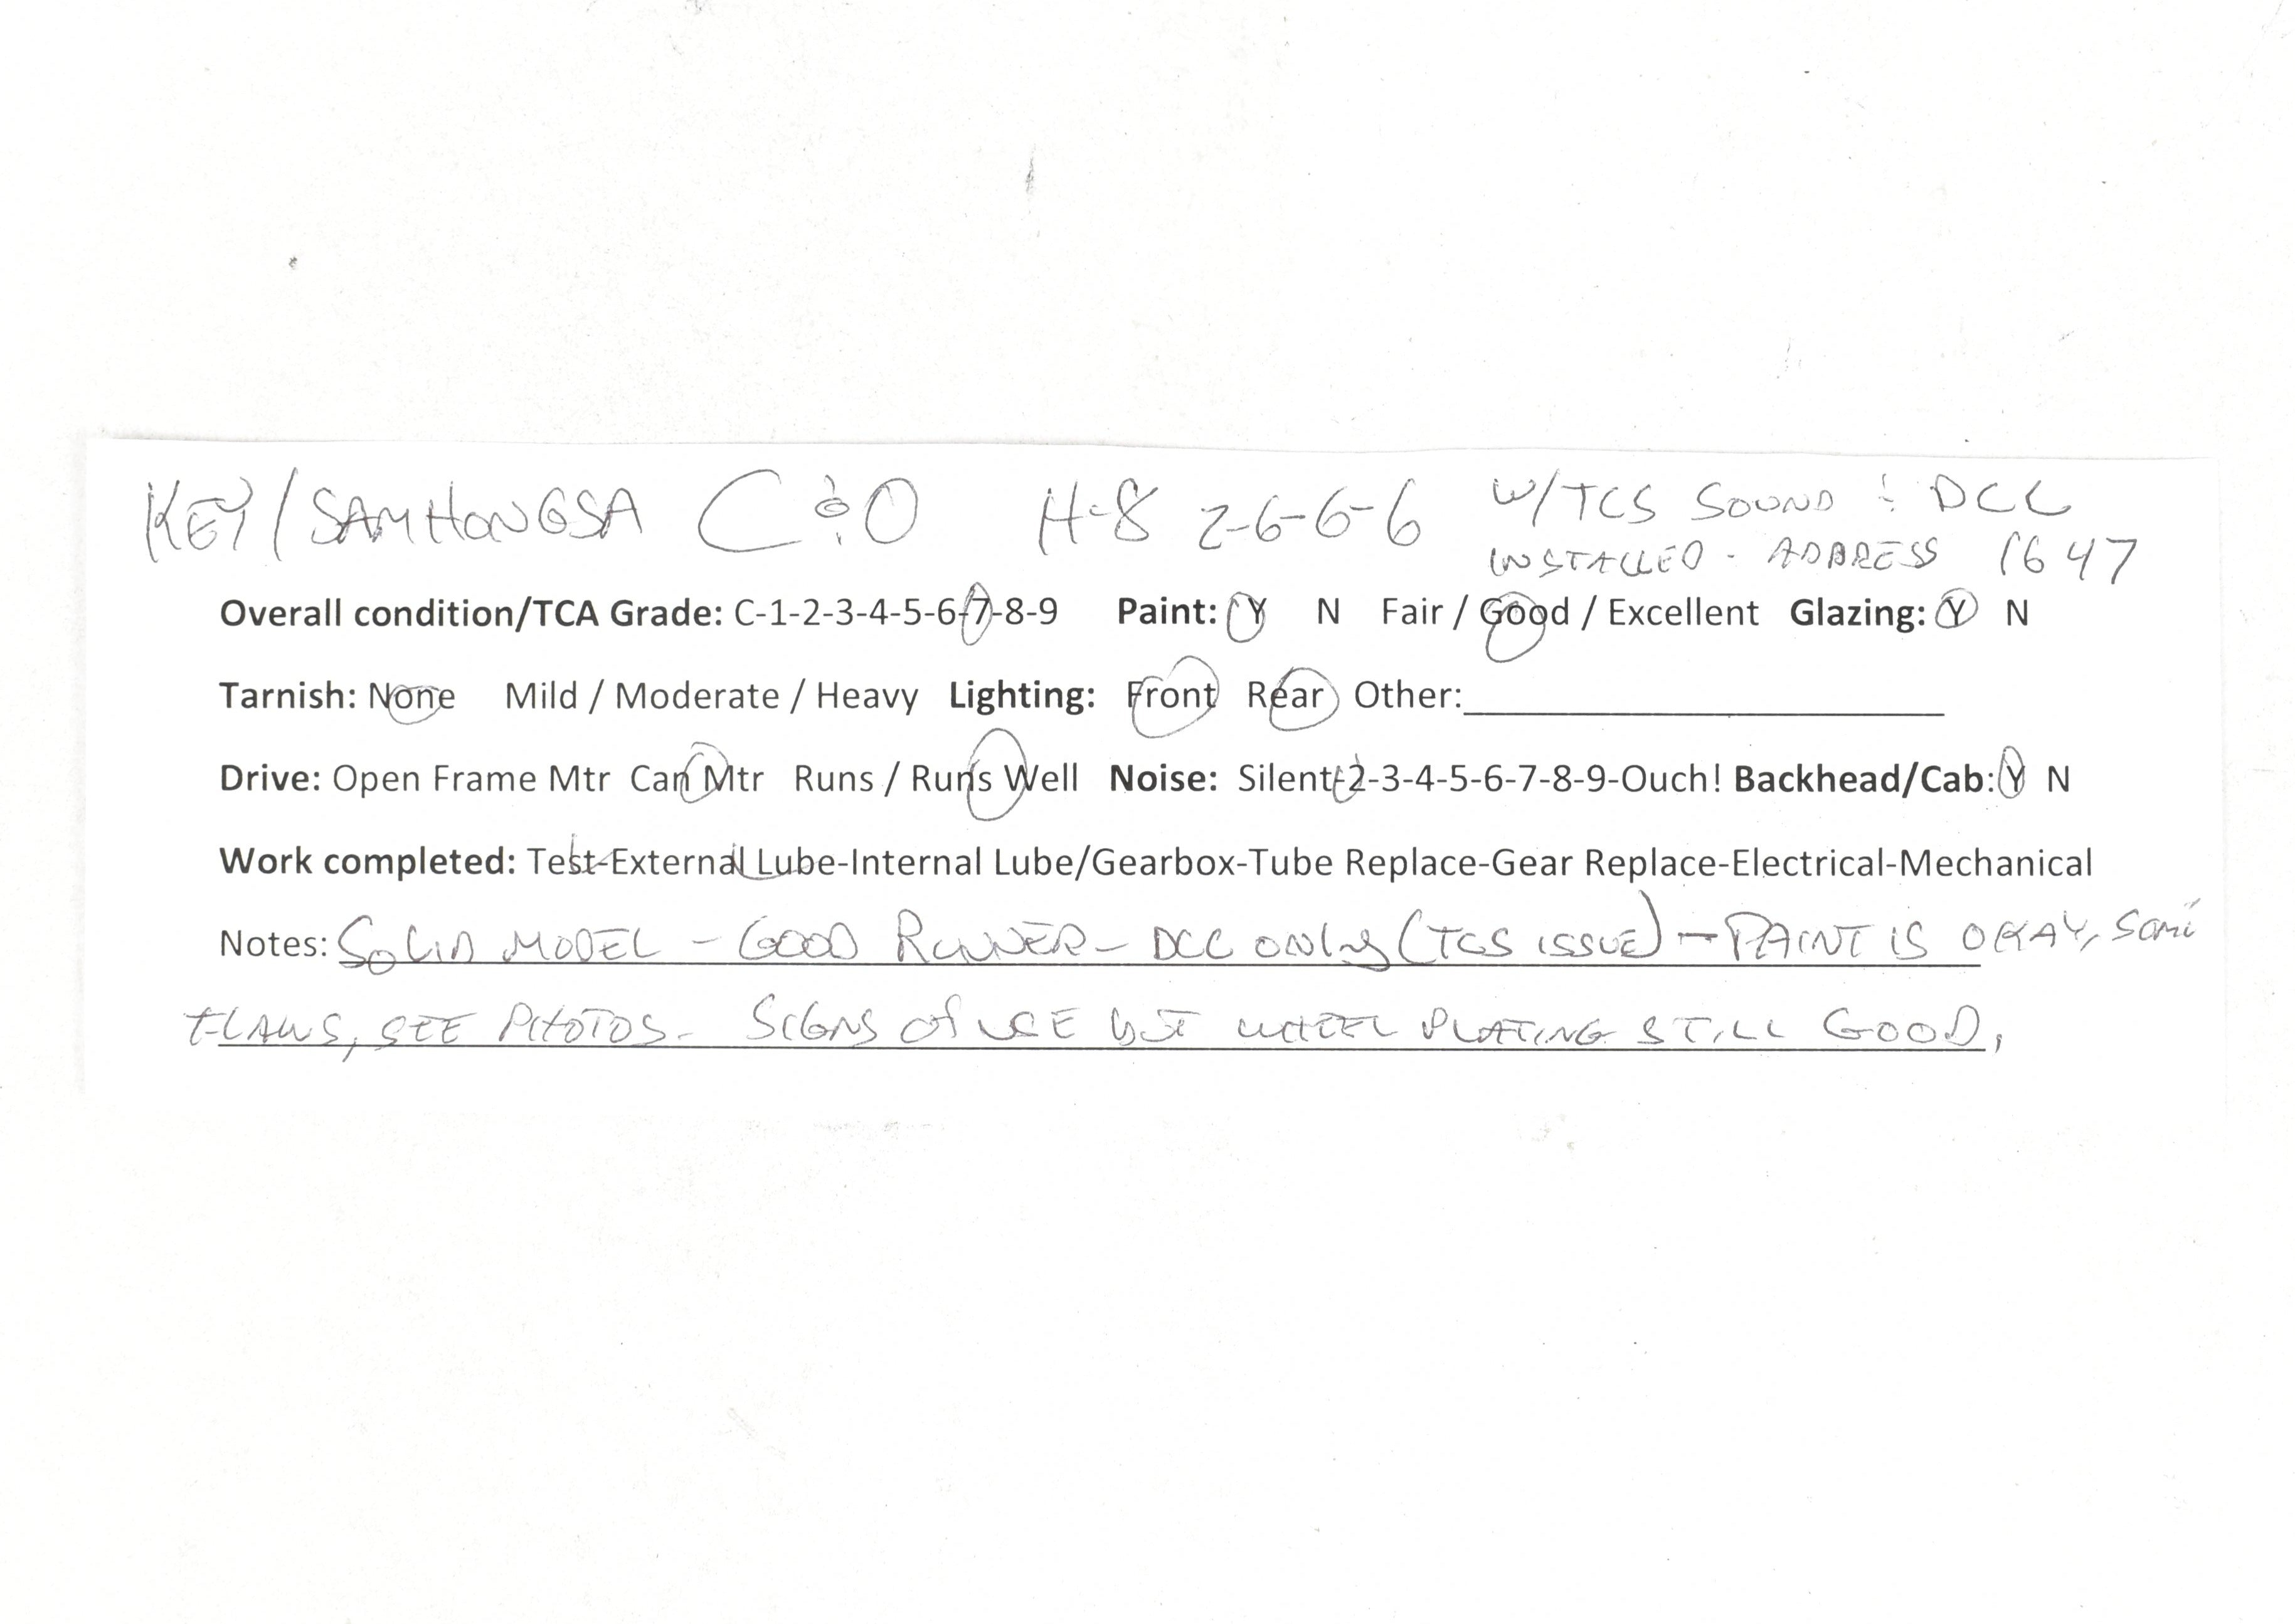 KEY/SAMHONGSA C&O H-8 2-6-6-6 W/TCS SOUND & DCC
INSTALLED - ADDRESS 1647
Overall condition/TCA Grade: C-1-2-3-4-5-6-7-8-9 Paint: Y N Fair / Good / Excellent Glazing: Y N
Tarnish: None Mild / Moderate / Heavy Lighting: Front Rear Other:
Drive: Open Frame Mtr Can Mtr Runs / Runs Well Noise: Silent-2-3-4-5-6-7-8-9-Ouch! Backhead/Cab: Y N
Work completed: Test-External Lube-Internal Lube/Gearbox-Tube Replace-Gear Replace-Electrical-Mechanical
Notes: SOLID MODEL - GOOD RUNNER - DCC ONLY (TCS ISSUE) - PAINT IS OKAY, SOME
FLAWS, SEE PHOTOS - SIGNS OF USE BUT WHEEL PLATING STILL GOOD.